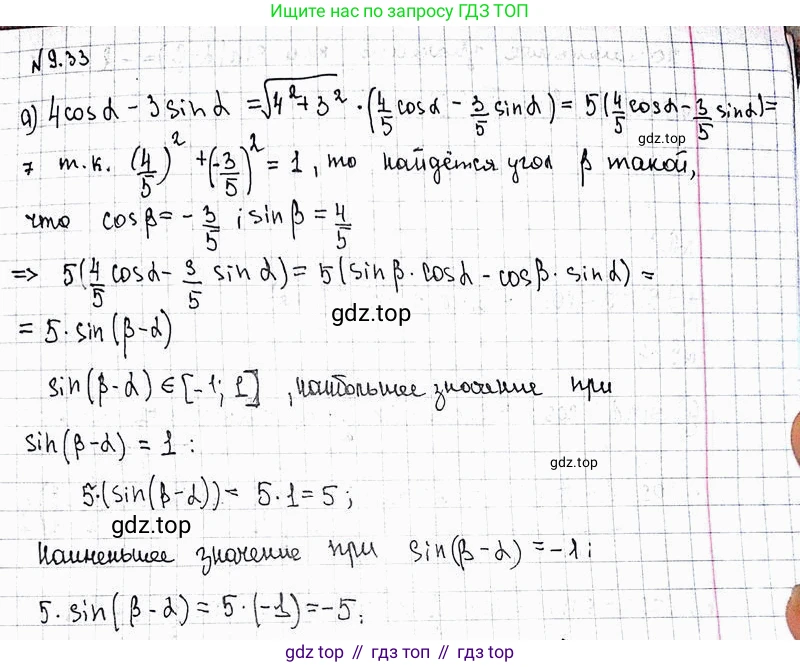 Ищите нас по запросу ГДЗ ТОП
№9.33
а) 4cosα - 3sinα = √4²+3² · (4/5 cosα - 3/5 sinα) = 5(4/5 cosα - 3/5 sinα) =
гдз.top
т.к. (4/5)² + (-3/5)² = 1, то найдётся угол β такой,
что cosβ = -3/5 ; sinβ = 4/5
=> 5(4/5 cosα - 3/5 sinα) = 5(sinβ · cosα - cosβ · sinα) =
гдз.top
= 5·sin(β-α)
sin(β-α) ∈ [-1; 1] , наибольшее значение при
sin(β-α) = 1 :
гдз.top
5·(sin(β-α)) = 5·1 = 5 ;
гдз.top
Наименьшее значение при sin(β-α) = -1 ;
5· sin(β-α) = 5·(-1) = -5 ;
гдз.top // гдз топ // гдз top